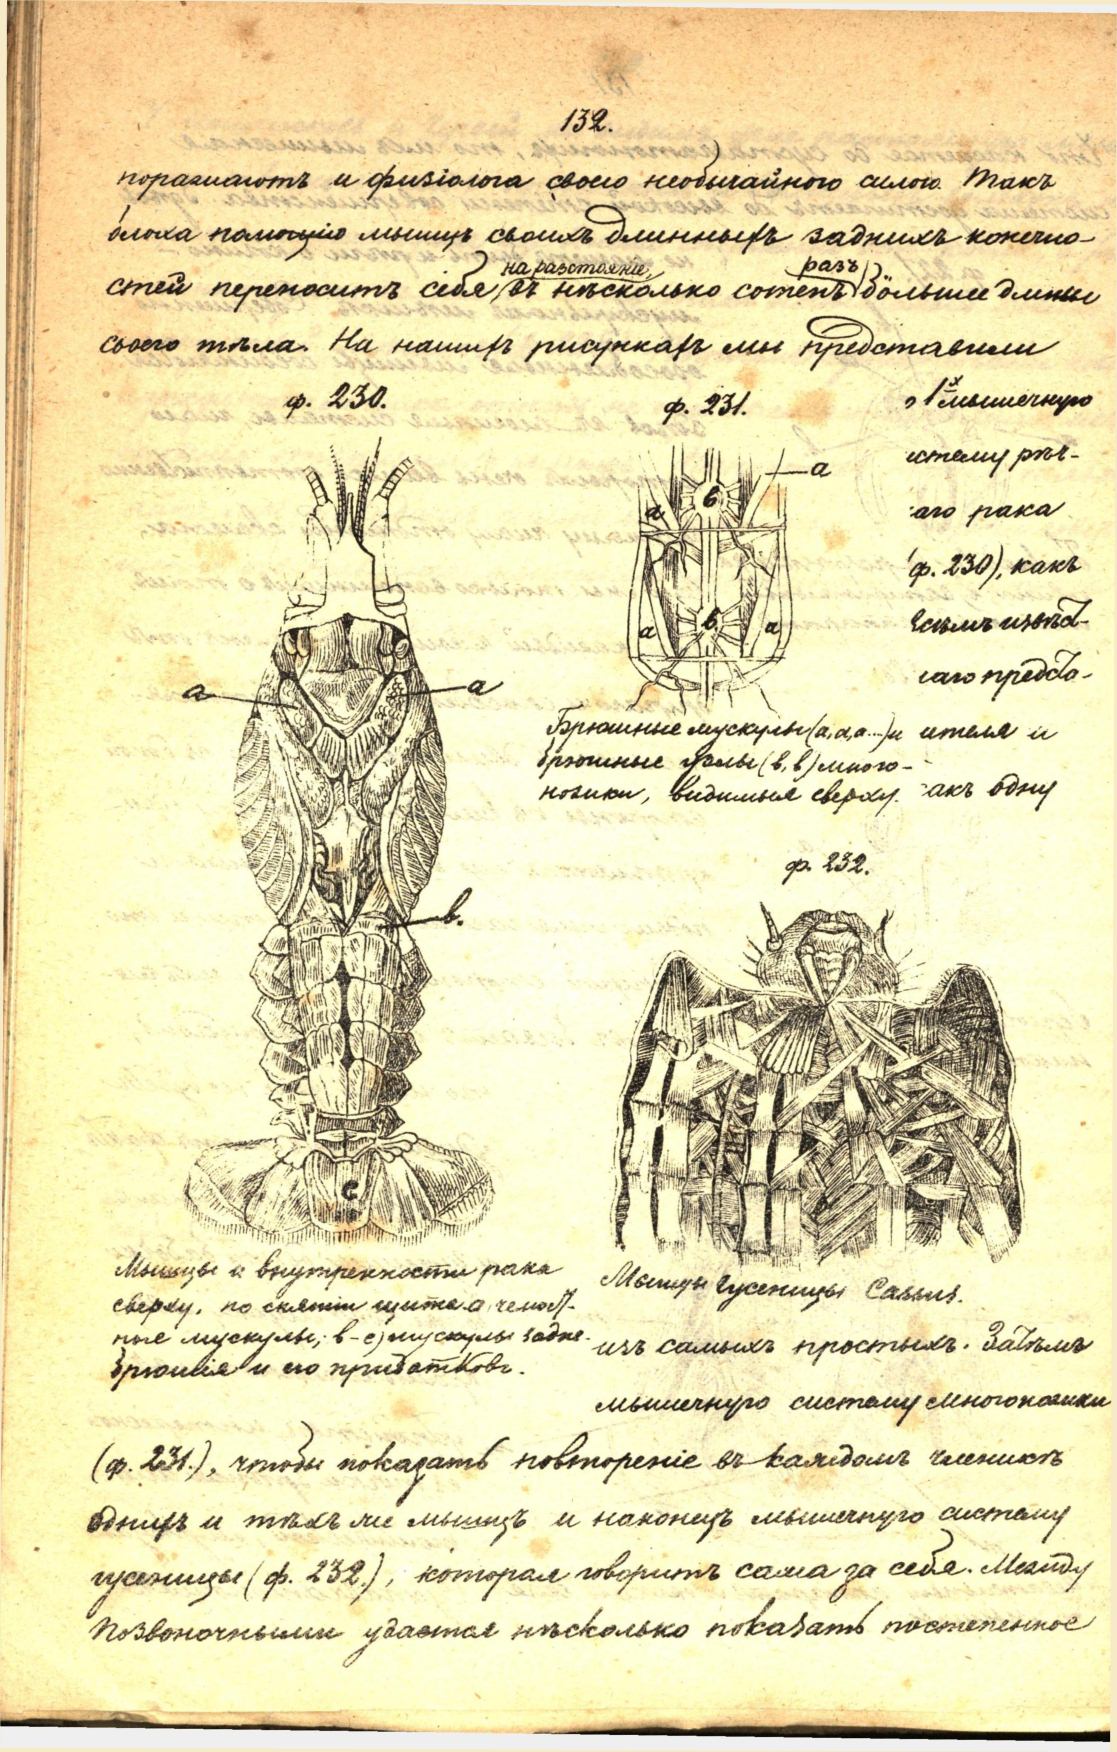 132.
поражаютъ и физіолога своею необычайною силою. Такъ
блоха помощію мышцъ своихъ длинныхъ заднихъ конечно-
стей переноситъ себя на разстояніе, въ нѣсколько сотенъ разъ бо́льшее длины
своего тѣла. На нашихъ рисункахъ мы представили
ф. 230.
ф. 231.
1х мышечную
стему рѣч-
аго рака
ф. 230), какъ
а
а
а
а
в
в
Брюшные мускулы (а, а, а...) и
брюшные узлы (в, в) много-
ножки, видимыя сверху.
ителя и
акъ одну
а
а
в.
с
ф. 232.
Мышцы и внутренности рака
сверху, по снятіи щита а, челюст-
ные мускулы; в-с) мускулы задне-
брюшія и его придатковъ.
Мышцы гусеницы
изъ самыхъ простыхъ. Затѣмъ
мышечную систему многоножки
(ф. 231.), чтобы показать повтореніе въ каждомъ членикѣ
однихъ и тѣхъ же мышцъ и наконецъ мышечную систему
гусеницы (ф. 232.), которая говоритъ сама за себя. Между
Позвоночными удастся нѣсколько показать постепенное